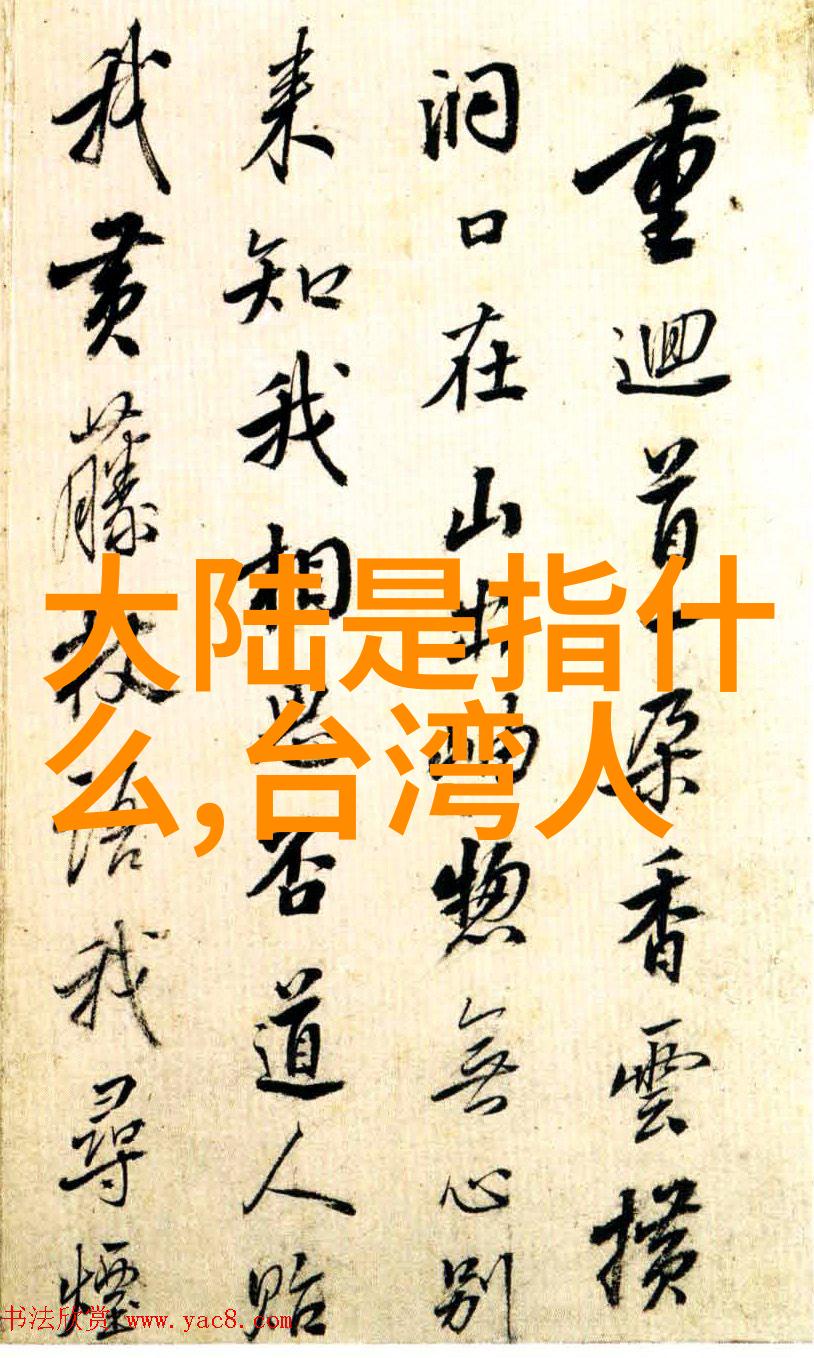 大陆是指什
么,台湾人
重迴首一朵香雲
洞口在山出岫惣無心别
来知我相思否道人贻
我黄藤杖语我尋煙
书法欣赏 www.yac8.com